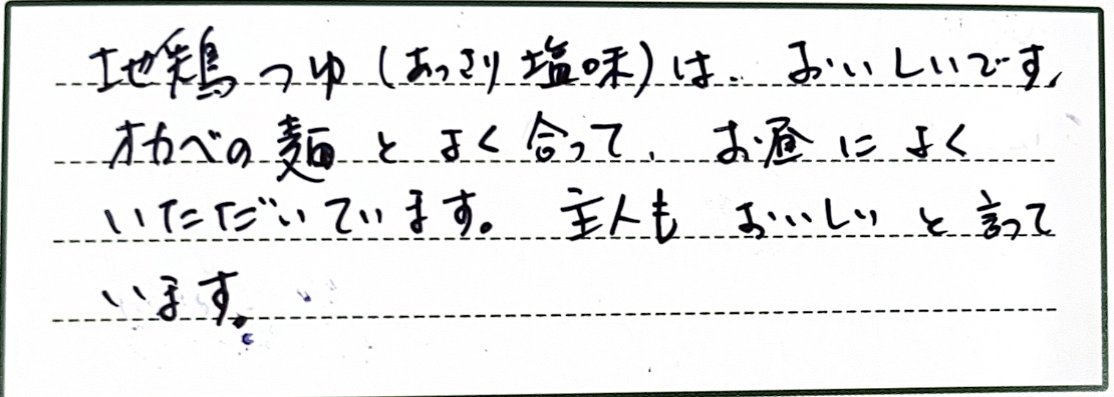 地鶏つゆ(あっさり塩味)は、おいしいです、
オカベの麺とよく合って、お昼によく
いただいています。主人もおいしいと言って
います。